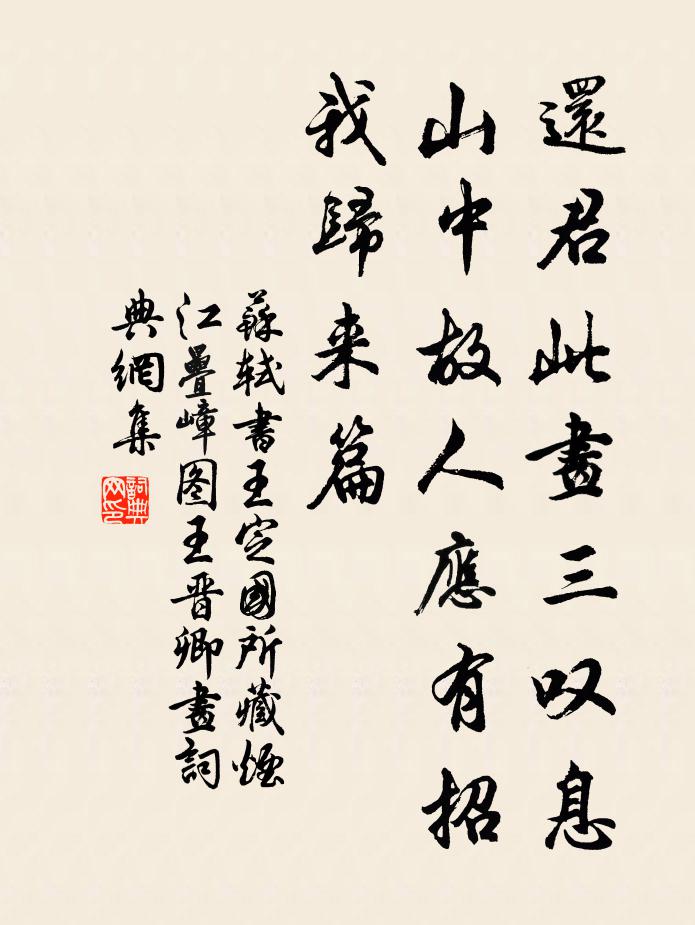 還君此畫三叹息
山中故人應有招
我歸来篇
蘇軾書王定國所藏煙
江疊嶂图王晋卿畫詞
典網集
詞典
网印